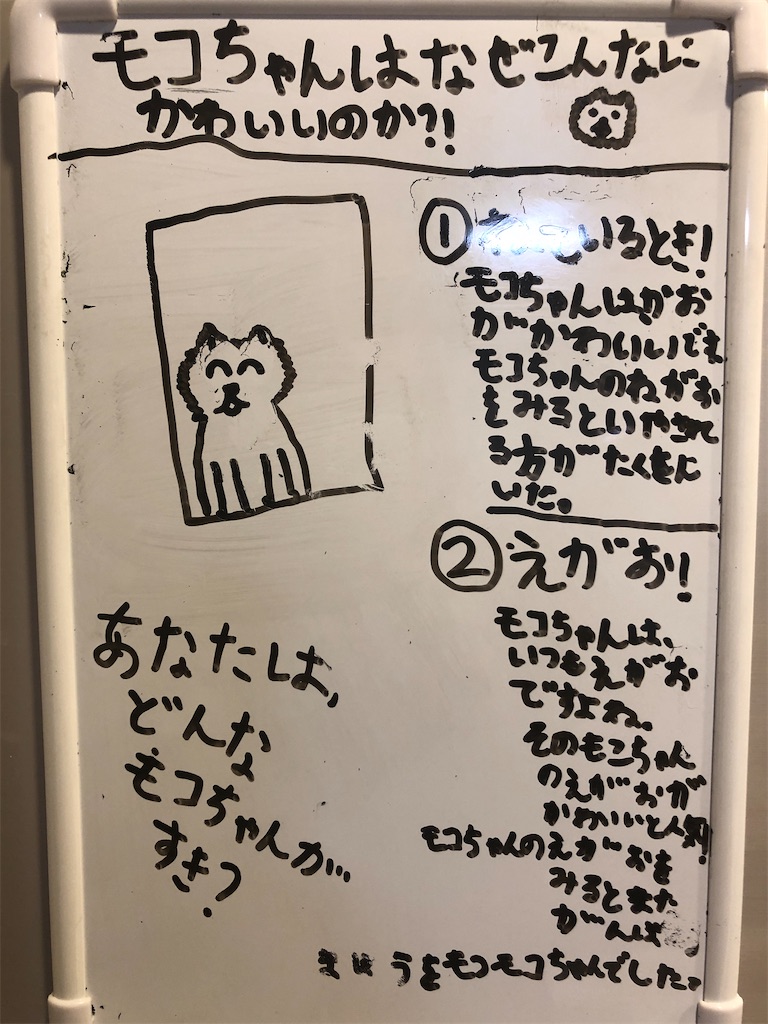 モコちゃんはなぜこんなに
かわいいのか?!
① ているとき!
モコちゃんはかお
がかわいいです
モコちゃんのねがお
をみるといやされて
る方がたくさん
いた。
② えがお!
モコちゃんは、
いつもえがお
ですよね。
そのもこちゃん
のえがおが
かわいいと人気!
モコちゃんのえがおを
みるとまた
がんば
うをモコモコちゃんでした。
あなたは、
どんな
モコちゃんが…
すき?